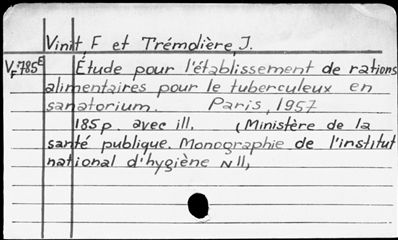 Vinit, F et Trémolière, J.
VF 785E Étude pour l'établissement de rations
alimentaires pour le tuberculeux en
sanatorium. Paris, 1957
185p. avec ill. (Ministère de la
santé publique. Monographie de l'institut
national d'hygiène N 11,